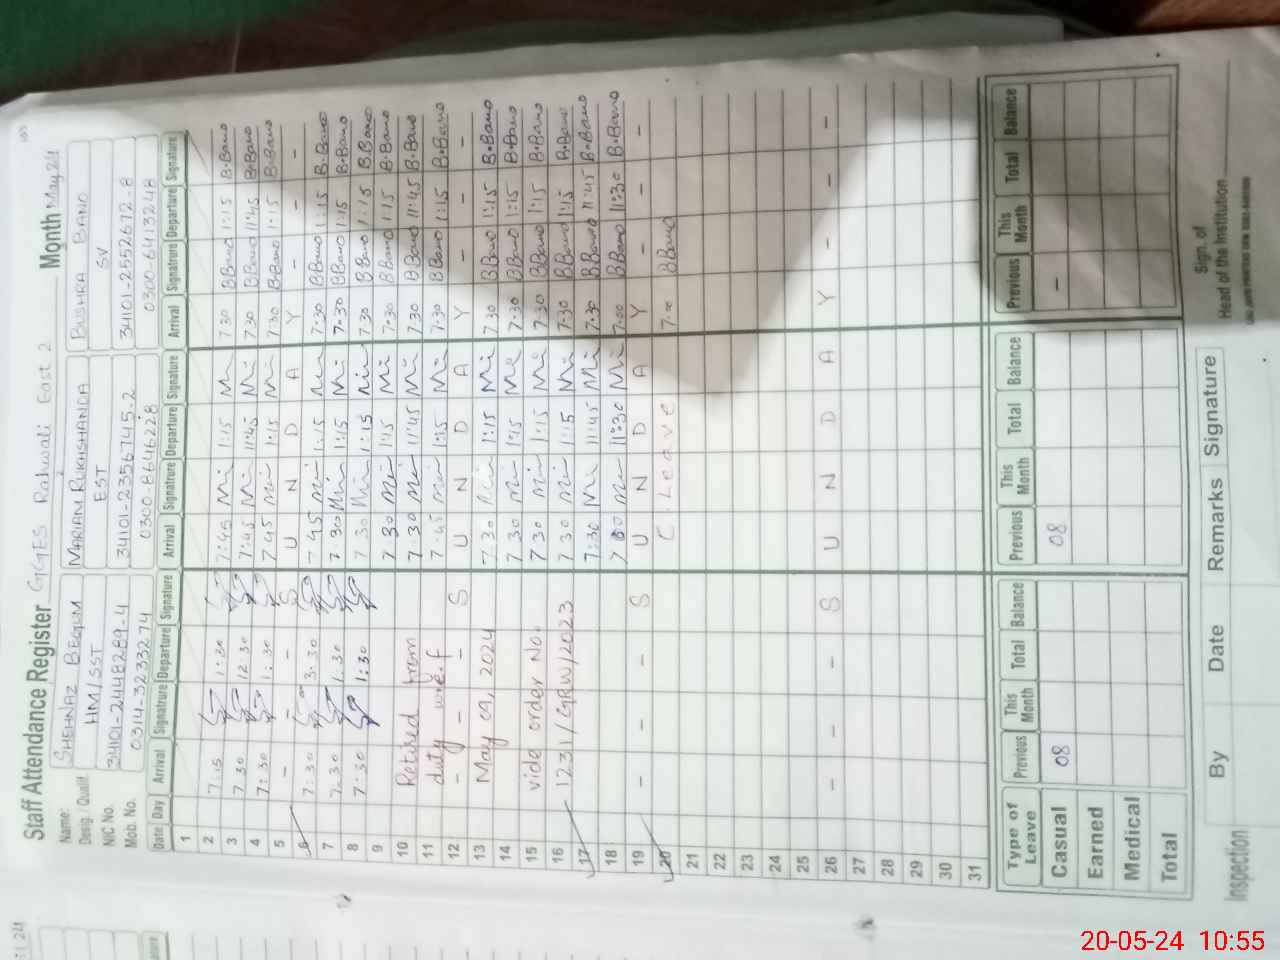 Staff Attendance Register GGES Rahwali East 2 Month May 24
Name: SHEHNAZ BEGUM MARIAM RUKHSHANDA BUSHRA BANO
Desig. / Qualif HM/SST EST SV
NIC No. 34101-2448289-4 34101-2356745-2 34101-2552672-8
Mob. No. 0314-3233274 0300-8646228 0300-6413248
Date Day Arrival Signature Departure Signature Arrival Signature Departure Signature Arrival Signature Departure Signature
1
2 7:15 1:30 7:45 1:15 7:30 B.Bano 1:15 B.Bano
3 7:30 12:30 7:45 11:45 7:30 B.Bano 11:45 B.Bano
4 7:30 1:30 7:45 1:15 7:30 B.Bano 1:15 B.Bano
5 - - - S U N D A Y - - -
6 7:30 3:30 7:45 1:15 7:30 B.Bano 1:15 B.Bano
7 7:30 1:30 7:30 1:15 7:30 B.Bano 1:15 B.Bano
8 7:30 1:30 7:30 1:15 7:30 B.Bano 1:15 B.Bano
9 7:30 1:15 7:30 B.Bano 1:15 B.Bano
10 Retired from 7:30 11:45 7:30 B.Bano 11:45 B.Bano
11 duty w.e.f 7:45 1:15 7:30 B.Bano 1:15 B.Bano
12 - - - S U N D A Y - - -
13 May 09, 2024 7:30 1:15 7:30 B.Bano 1:15 B.Bano
14 7:30 1:15 7:30 B.Bano 1:15 B.Bano
15 vide order No. 7:30 1:15 7:30 B.Bano 1:15 B.Bano
16 1231/GRW/2023 7:30 1:15 7:30 B.Bano 1:15 B.Bano
17 7:30 11:45 7:30 B.Bano 11:45 B.Bano
18 7:00 11:30 7:00 B.Bano 11:30 B.Bano
19 - - - S U N D A Y - - -
20 C. Leave 7:00 B.Bano
21
22
23
24
25
26 - - - S U N D A Y - - -
27
28
29
30
31
Type of Leave Previous This Month Total Balance Previous This Month Total Balance Previous This Month Total Balance
Casual 08 08 -
Earned
Medical
Total
Inspection By Date Remarks Signature
Sign. of
Head of the Institution
20-05-24 10:55